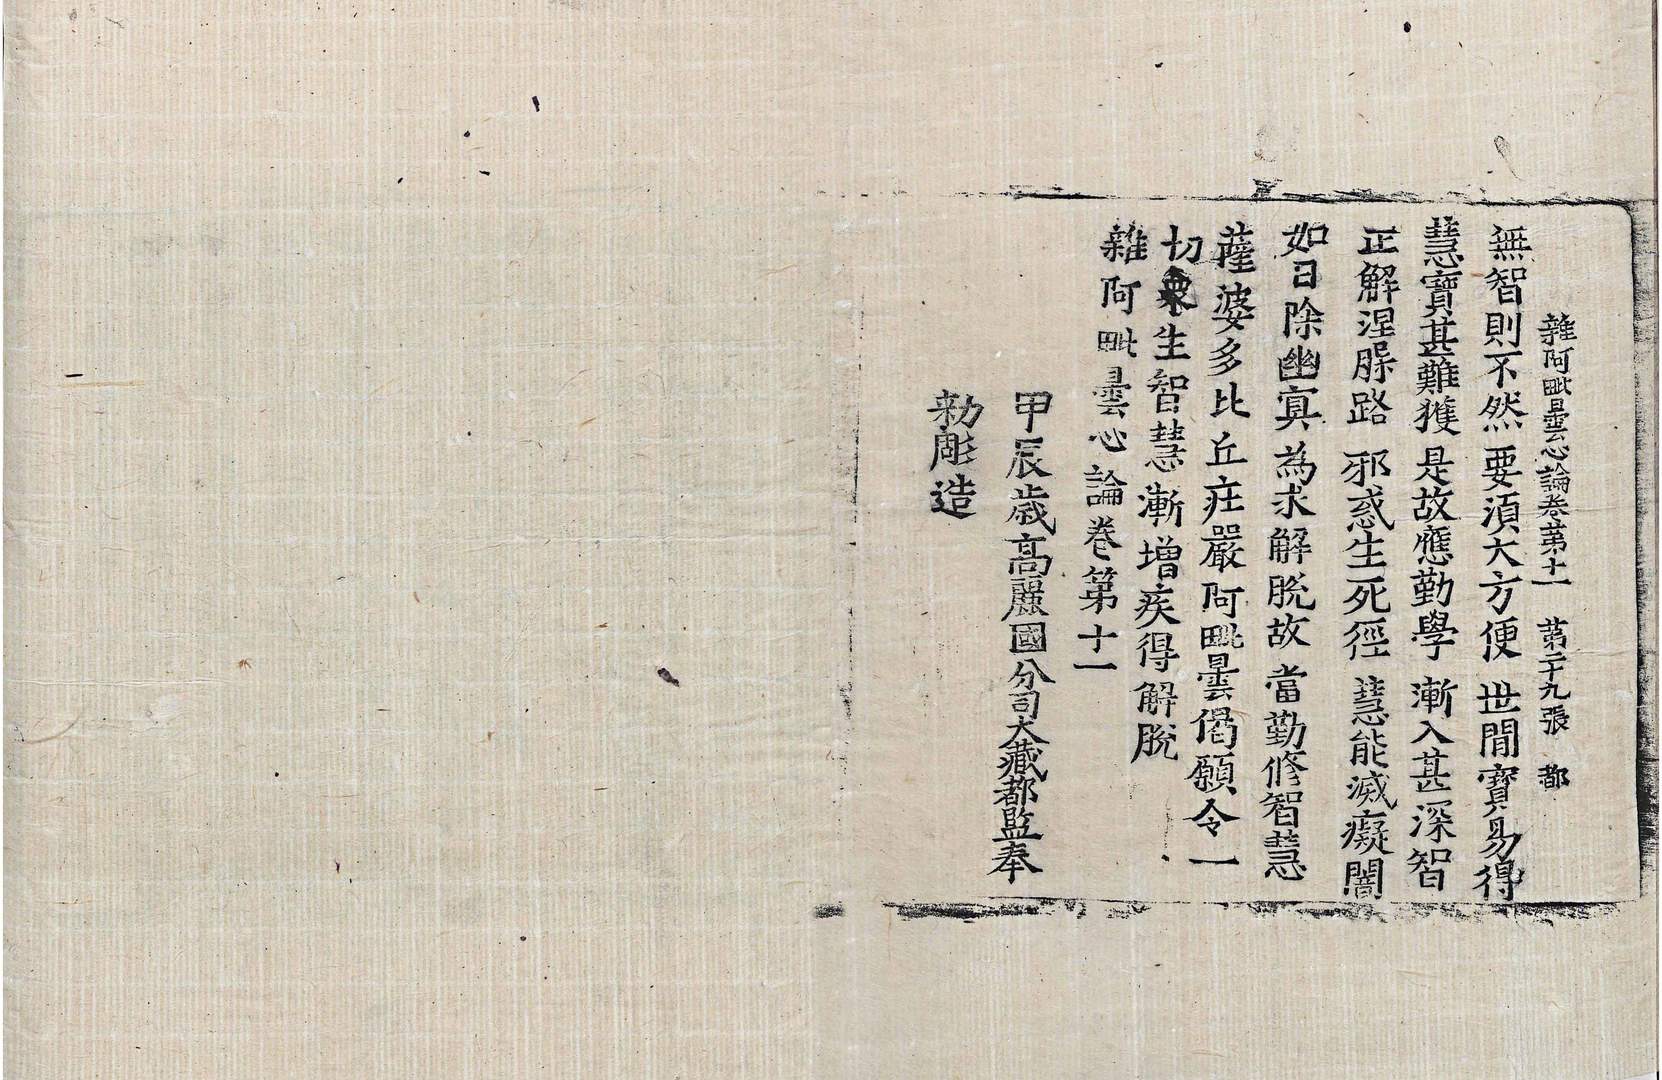 雜阿毗曇心論卷第十一 第二十九張 都
無智則不然 要須大方便 世間寶易得
慧寶甚難獲 是故應勤學 漸入甚深智
正解涅槃路 邪惑生死徑 慧能滅癡闇
如日除幽冥 為求解脫故 當勤修智慧
薩婆多比丘 莊嚴阿毗曇偈願令一
切衆生智慧漸增疾得解脫
雜阿毗曇心論卷第十一
甲辰歲高麗國分司大藏都監奉
勅彫造